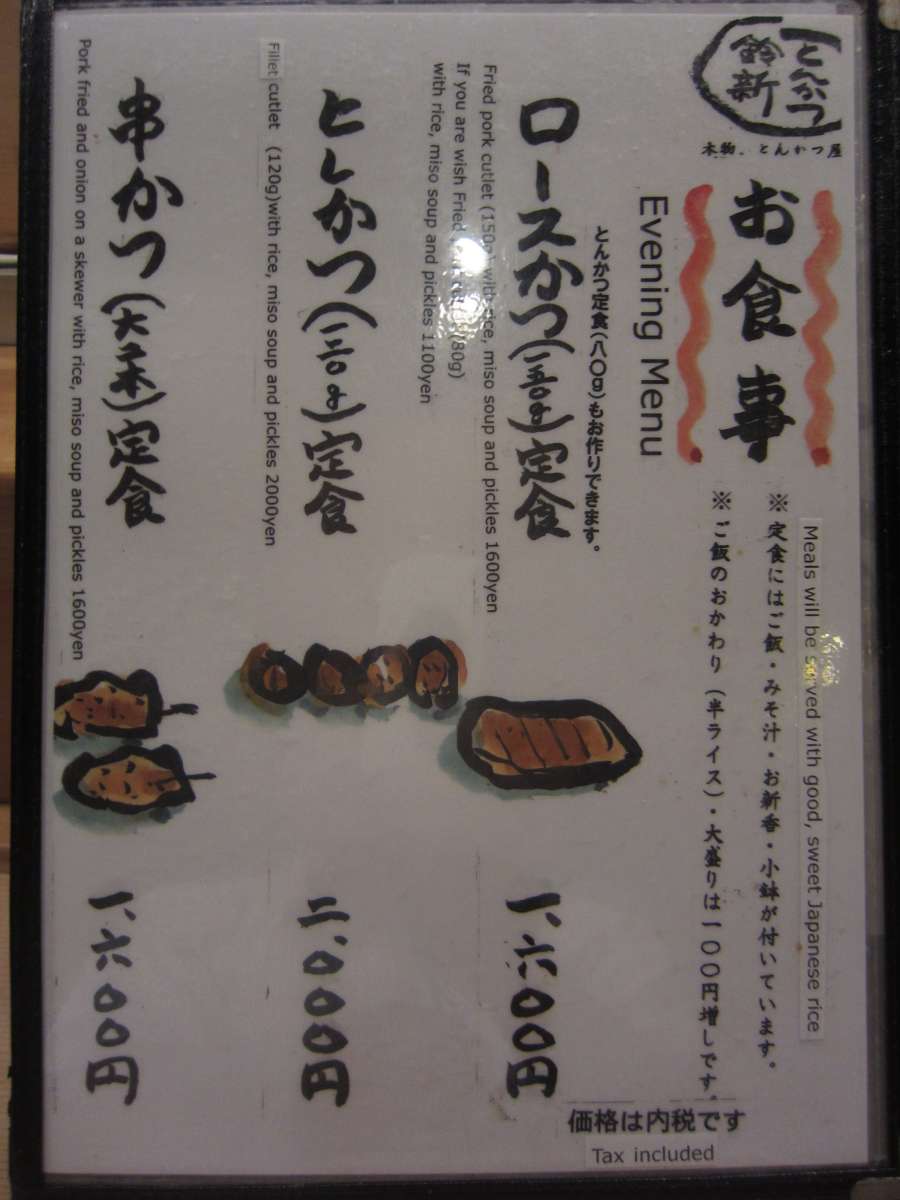 とんかつ
鈴新
本物、とんかつ屋
お食事
Evening Menu
Meals will be served with good, sweet Japanese rice
※定食にはご飯・みそ汁・お新香・小鉢が付いています。
※ご飯のおかわり（半ライス）・大盛りは一〇〇円増しです。
価格は内税です
Tax included
とんかつ定食(八〇g)もお作りできます。
ロースかつ(一五〇g)定食
一、六〇〇円
Fried pork cutlet (150g)with rice, miso soup and pickles 1600yen
If you are wish Fried (80g)
with rice, miso soup and pickles 1100yen
ヒレかつ(一二〇g)定食
二、〇〇〇円
Fillet cutlet (120g)with rice, miso soup and pickles 2000yen
串かつ(大二本)定食
一、六〇〇円
Pork fried and onion on a skewer with rice, miso soup and pickles 1600yen